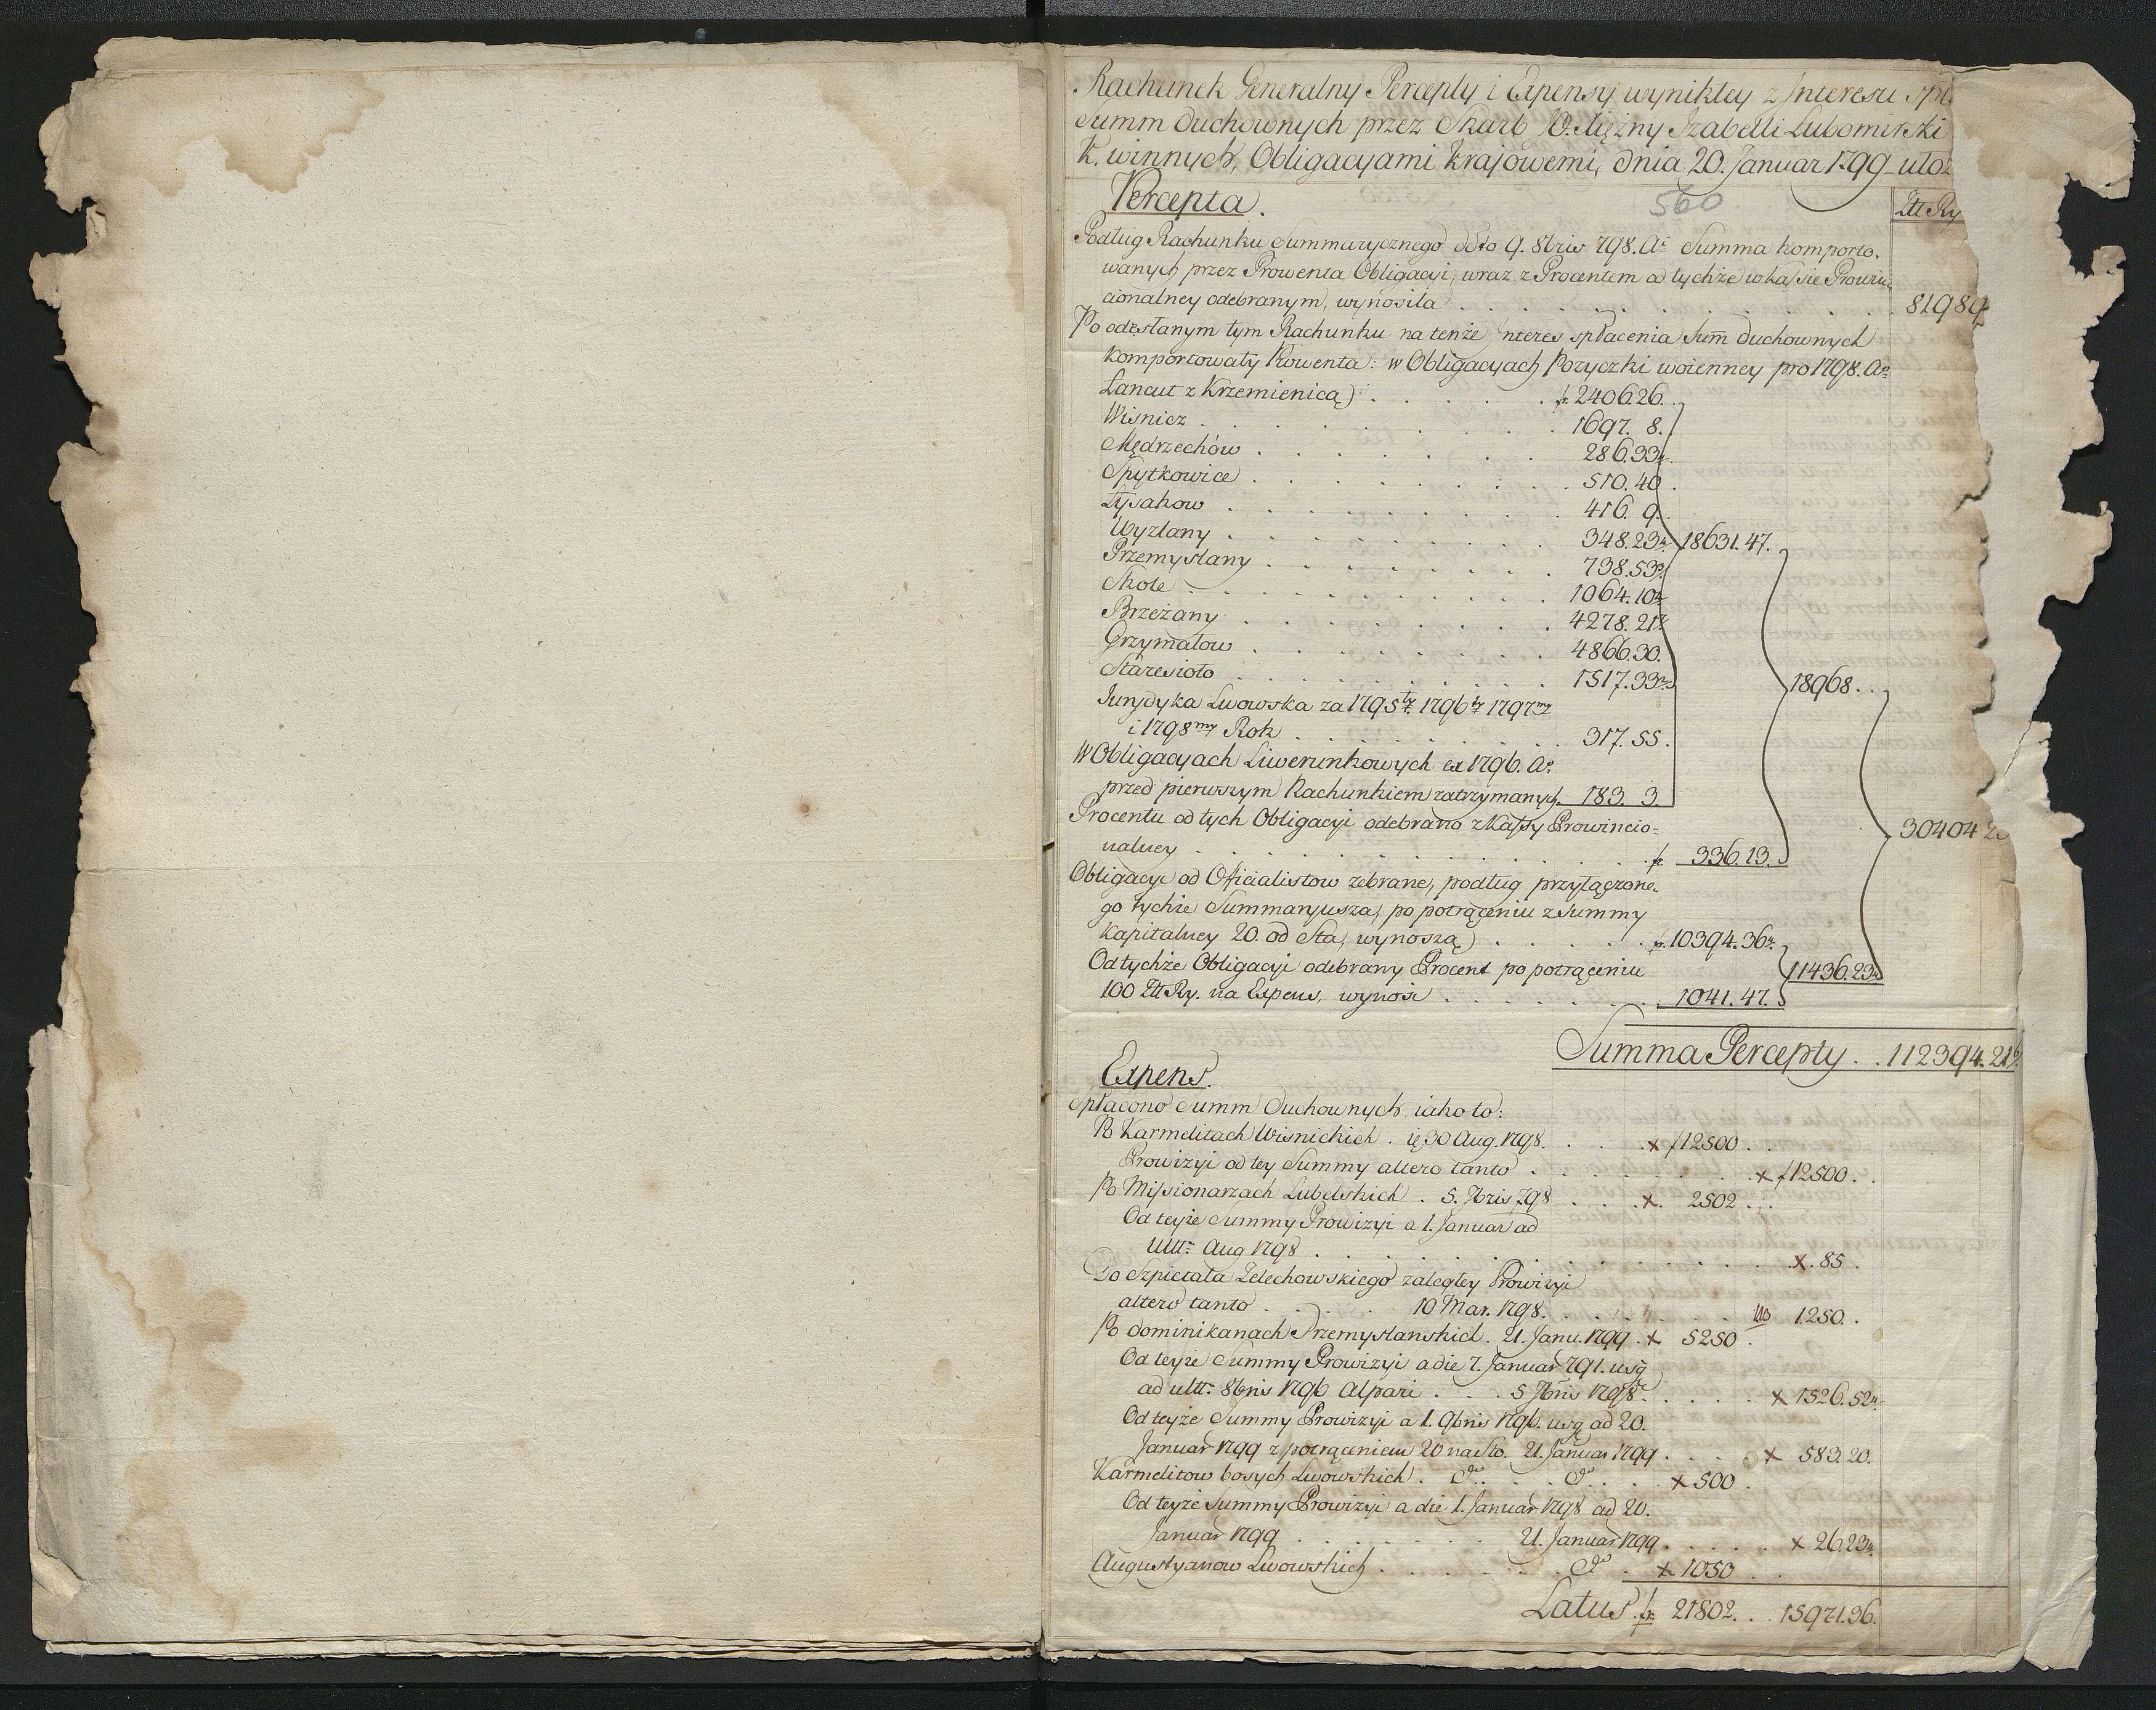 Rachunek Generalny Percepty i Expensy wynikłey z Interesu
Summ Duchownych przez Skarb JO. Xiężny Izabelli Lubomirski
K. winnych, Obligacyami krajowemi, dnia 20. Januar 1799
560
Percepta. Ztt Ry
Podług Rachunku Summarycznego ddto 9. 8bris 798. Ao Summa komporto-
wanych przez Prowenta Obligacyi, wraz z Procentem od tychże w kassie Prowin-
cionalney odebranym, wynosiła . . . 8198
Po odesłanym tym Rachunku na tenże Interes spłacenia Sum̄ duchownych
komportowały Prowenta: w Obligacyach Pozyczki woienney pro 1798. Ao
Lancut z Krzemienicą . . . fr 2406.26.
Wisnicz . . . 1697. 8.
Mędrzechów . . . 286.33
Spytkowice . . . 510.40
Łysakow . . . 416. 9.
Uyzłany . . . 348.23 18631.47.
Przemyslany . . . 738.53
Skole . . . 1064.10
Brzeżany . . . 4278.21
Grzymałow . . . 4866.30.
Staresioło . . . 1517.33 18968 . .
Jurydyka Lwowska za 1795ty 1796ty 1797my
i 1798my Rok . . . 317.55.
W Obligacyach Liwerunkowych ex 1796. Ao
przed pierwszym Rachunkiem zatrzymanych 183. 3.
Procentu od tych Obligacyi odebrano z Kassy Prowincio= 30404
nalney . . . fr 336.13.
Obligacye od Oficialistow zebrane, podług przyłączone-
go tychże Summaryusza, po potrąceniu z Summy
kapitalney 20. od Sta, wynoszą . . . fr. 10394.36
Od tychże Obligacyi odebrany Procent po potrąceniu 11436.23
100 Ztt Ry. na Expens, wynosi . . . 1041.47.
Summa Percepty . . 112394.21
Expens.
Spłacono Summ Duchownych, iako to:
Po Karmelitach Wisnickich . 30 Aug. 1798. . . x f 12500 . .
Prowizyi od tey Summy altero tanto . . . x f 12500 . .
Po Missionarzach Lubelskich . 5. 7bris 798 . . . x. 2502 . . .
Od teyże Summy Prowizyi a 1. Januar ad
Ultt: Aug 1798 . . . x. 85 .
Do Szpictala Zelechowskiego zaległey Prowizyi
altero tanto . . . 10 Mar. 1798. . . . 1250. .
Po dominikanach Przemyslanskich . 21. Janu. 1799 . x 5250 .
Od teyże Summy Prowizyi a die 7. Januar 791. usq
ad ultt: 8bris 1796 alpari . . . 5 7bris 1798 . . . x 1526.52
Od teyże Summy Prowizyi a 1. 9bris 1796. usq ad 20.
Januar 1799 z potrąceniem 20 na Sto. 21. Januar 1799 . . . x 583.20.
Karmelitow bosych Lwowskich . do . . . do . . . x 500 .
Od teyże Summy Prowizyi a die 1. Januar 1798 ad 20.
Januar 1799 . . . 21. Januar 1799 . . . x 26.23
Augustyanow Lwowskich . . . do . x 1050 . .
Latus fr 21802. . . 15971.36.